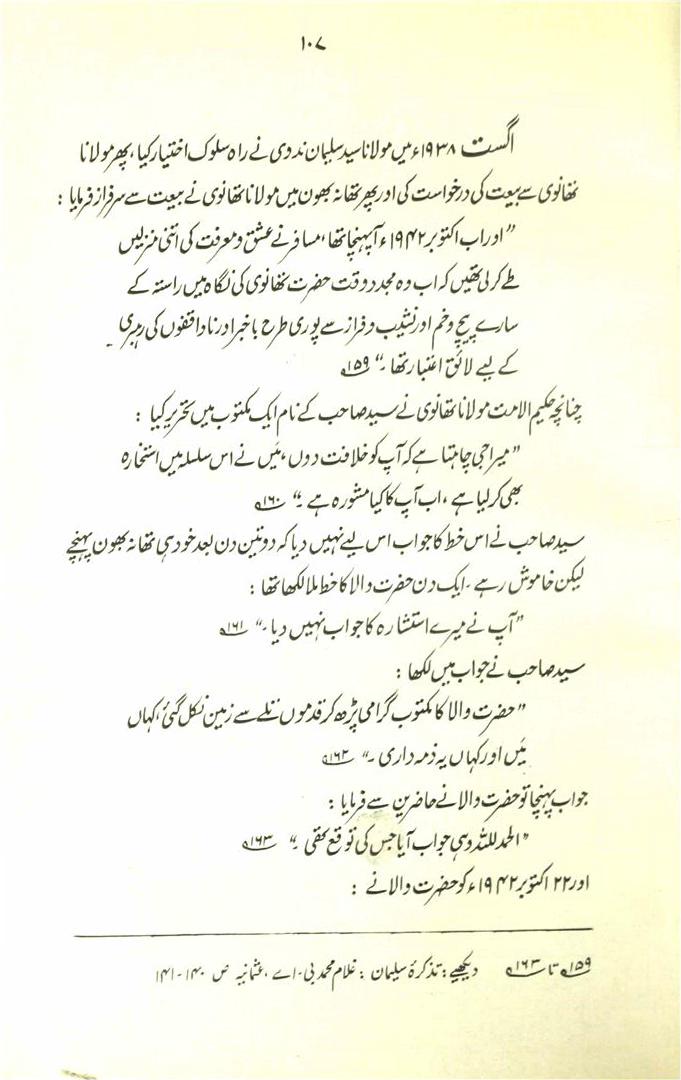 ۱۰۷
اگست ۱۹۳۸ء میں مولانا سید سلیمان ندوی نے راہ سلوک اختیار کیا، پھر مولانا
تھانوی سے بیعت کی درخواست کی اور پھر تھانہ بھون میں مولانا تھانوی نے بیعت سے سرفراز فرمایا :
”اور اب اکتوبر ۱۹۴۲ء آ پہنچا تھا، مسافر نے عشق و معرفت کی اتنی منزلیں
طے کر لی تھیں کہ اب وہ مجدد وقت حضرت تھانوی کی نگاہ میں راستہ کے
سارے پیچ و خم اور نشیب و فراز سے پوری طرح باخبر اور ناواقفوں کی رہبری
کے لیے لائق اعتبار تھا۔“ ۱۵۹؎
چنانچہ حکیم الامت مولانا تھانوی نے سید صاحب کے نام ایک مکتوب میں تحریر کیا :
”میرا جی چاہتا ہے کہ آپ کو خلافت دوں، میں نے اس سلسلہ میں استخارہ
بھی کر لیا ہے، اب آپ کا کیا مشورہ ہے۔“ ۱۶۰؎
سید صاحب نے اس خط کا جواب اس لیے نہیں دیا کہ دو تین دن بعد خود ہی تھانہ بھون پہنچے
لیکن خاموش رہے۔ ایک دن حضرت والا کا خط ملا لکھا تھا :
”آپ نے میرے استشارہ کا جواب نہیں دیا۔“ ۱۶۱؎
سید صاحب نے جواب میں لکھا :
”حضرت والا کا مکتوب گرامی پڑھ کر قدموں تلے سے زمین نکل گئی، کہاں
میں اور کہاں یہ ذمہ داری۔“ ۱۶۲؎
جواب پہنچا تو حضرت والا نے حاضرین سے فرمایا :
”الحمد للہ وہی جواب آیا جس کی توقع تھی۔“ ۱۶۳؎
اور ۲۲ اکتوبر ۱۹۴۲ء کو حضرت والا نے :
۱۵۹؎ تا ۱۶۳؎ دیکھیے : تذکرۂ سلیمان : غلام محمد بی۔اے، عثمانیہ ص ۱۴۰-۱۴۱